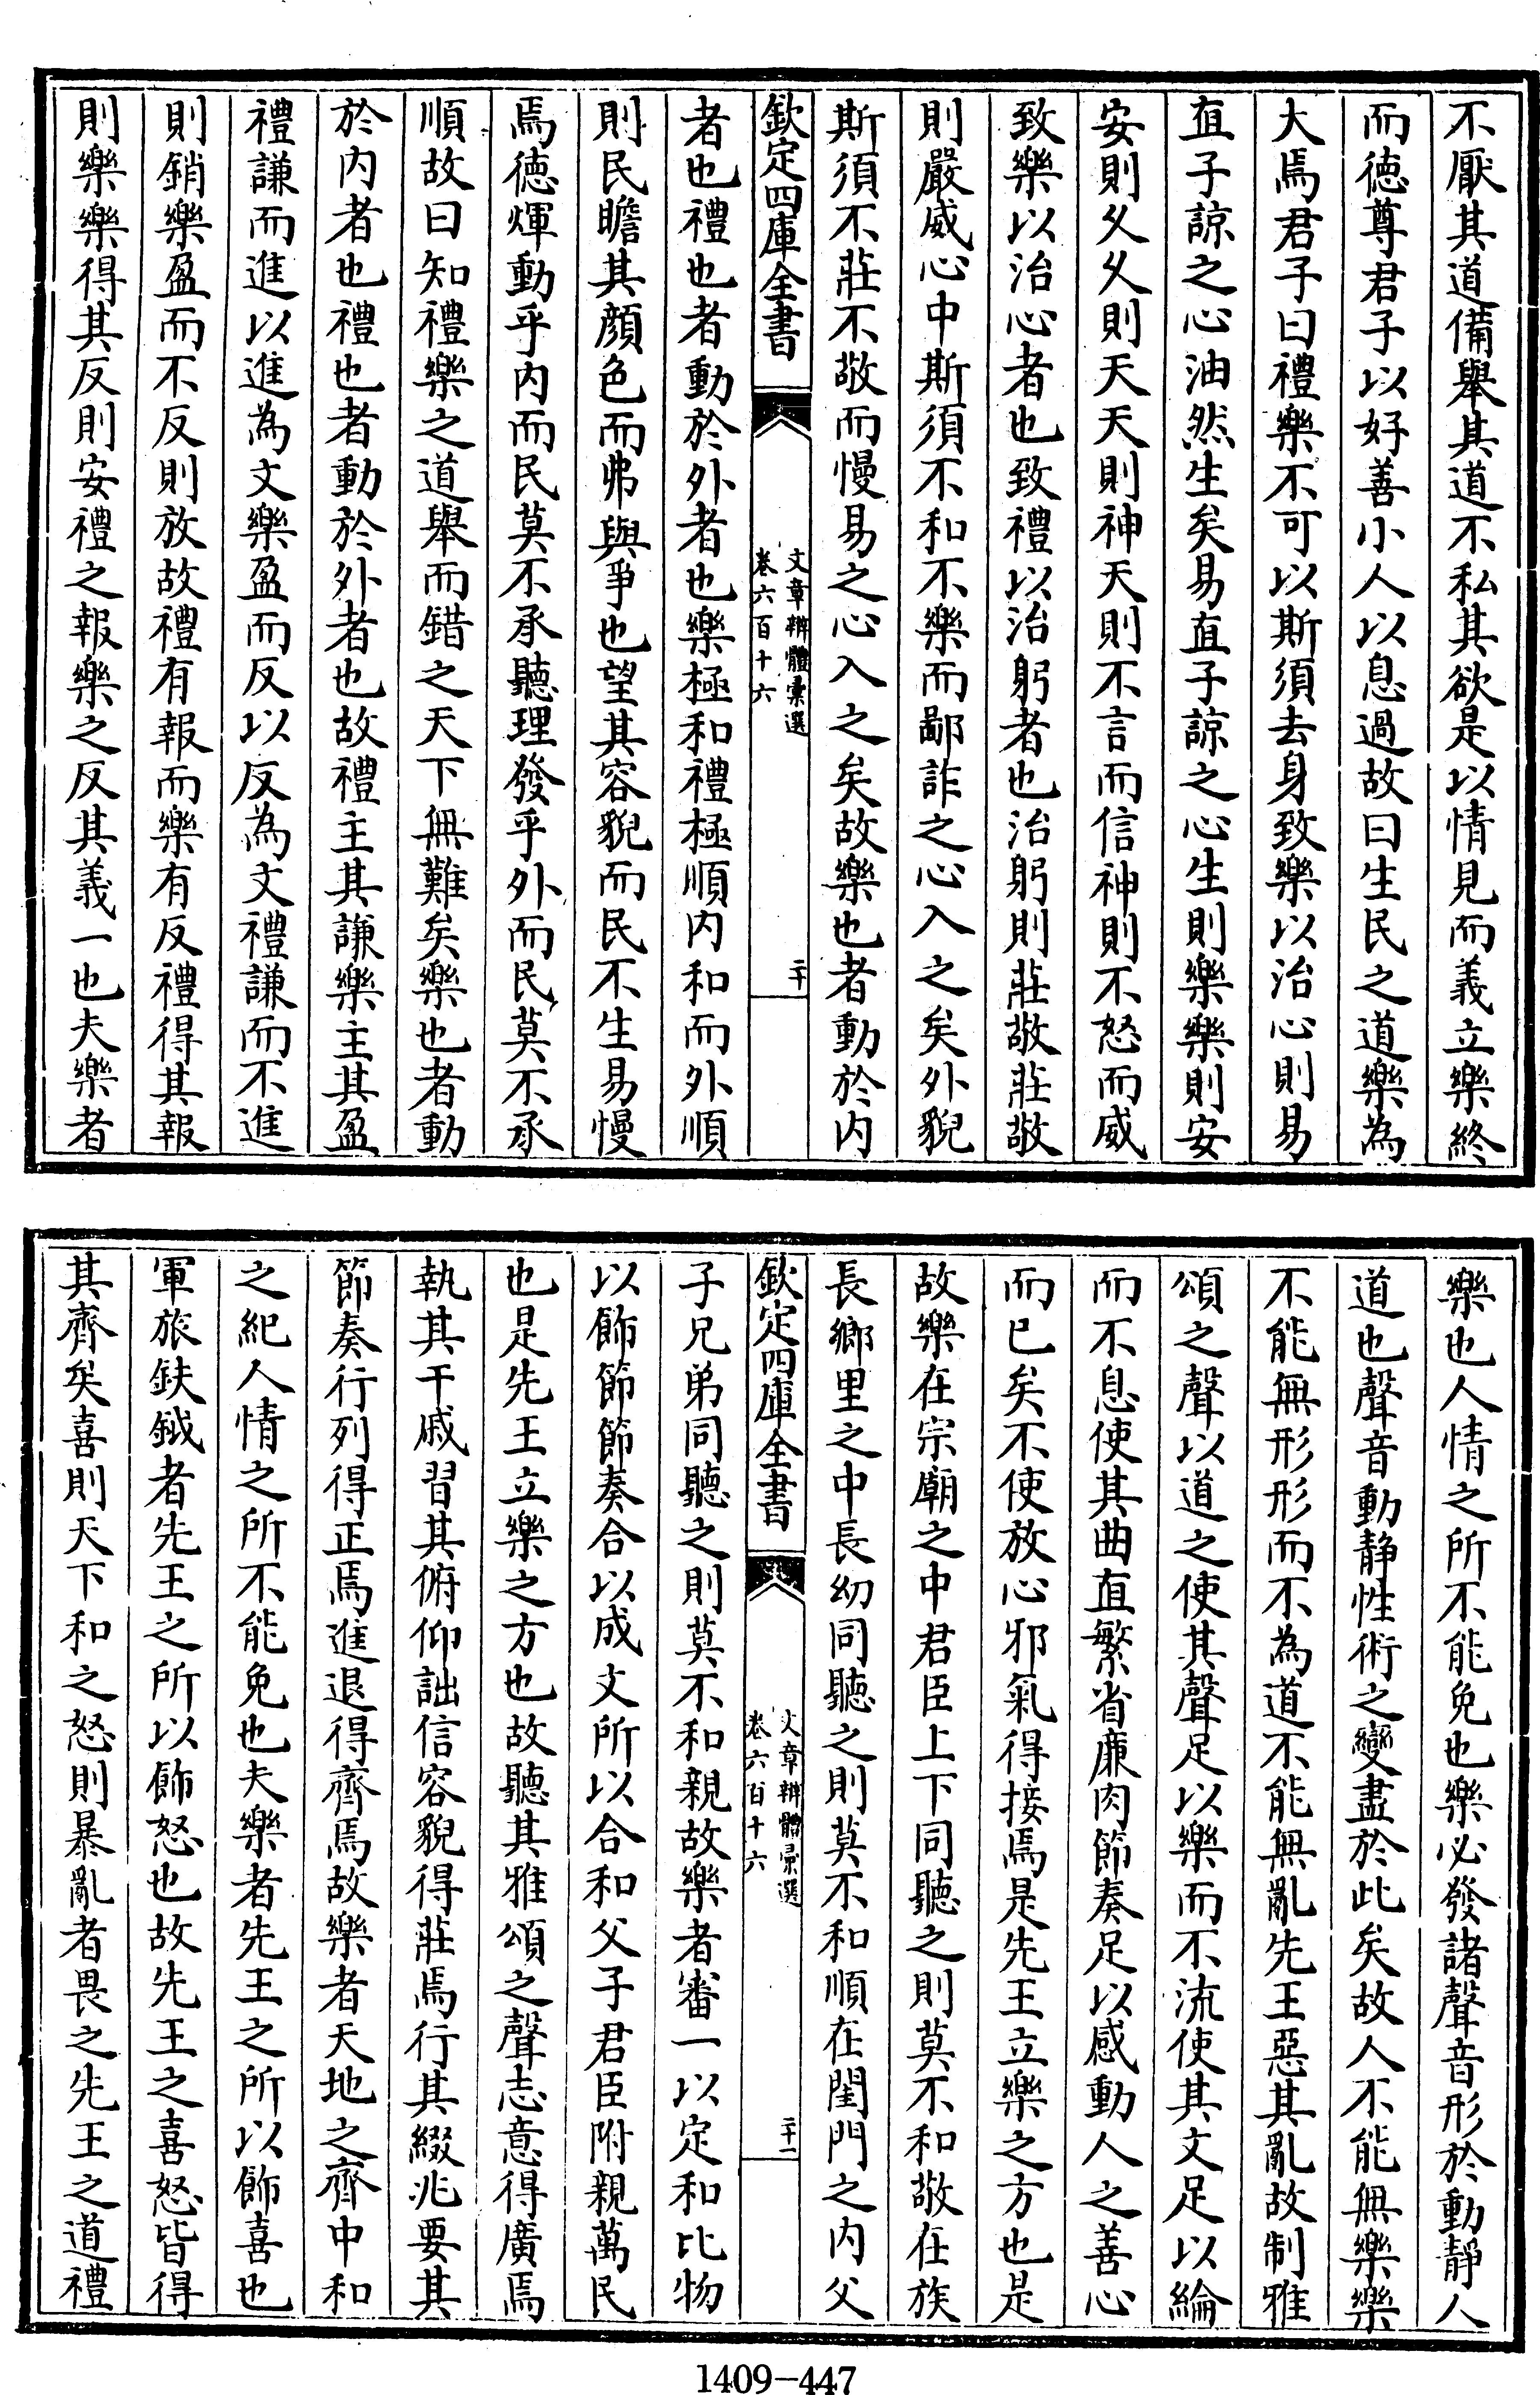 不厭其道備舉其道不私其欲是以情見而義立樂終
而德尊君子以好善小人以息過故曰生民之道樂為
大焉君子曰禮樂不可以斯須去身致樂以治心則易
直子諒之心油然生矣易直子諒之心生則樂樂則安
安則久久則天天則神天則不言而信神則不怒而威
致樂以治心者也致禮以治躬者也治躬則莊敬莊敬
則嚴威心中斯須不和不樂而鄙詐之心入之矣外貌
斯須不莊不敬而慢易之心入之矣故樂也者動於內
欽定四庫全書
文章辨體彙選
卷六百十六
二十
者也禮也者動於外者也樂極和禮極順內和而外順
則民瞻其顏色而弗與爭也望其容貌而民不生易慢
焉德煇動乎內而民莫不承聽理發乎外而民莫不承
順故曰知禮樂之道舉而錯之天下無難矣樂也者動
於內者也禮也者動於外者也故禮主其謙樂主其盈
禮謙而進以進為文樂盈而反以反為文禮謙而不進
則銷樂盈而不反則放故禮有報而樂有反禮得其報
則樂樂得其反則安禮之報樂之反其義一也夫樂者
樂也人情之所不能免也樂必發諸聲音形於動靜人
道也聲音動靜性術之變盡於此矣故人不能無樂樂
不能無形形而不為道不能無亂先王惡其亂故制雅
頌之聲以道之使其聲足以樂而不流使其文足以綸
而不息使其曲直繁省廉肉節奏足以感動人之善心
而已矣不使放心邪氣得接焉是先王立樂之方也是
故樂在宗廟之中君臣上下同聽之則莫不和敬在族
長鄉里之中長幼同聽之則莫不和順在閨門之內父
欽定四庫全書
文章辨體彙選
卷六百十六
二十一
子兄弟同聽之則莫不和親故樂者審一以定和比物
以飾節節奏合以成文所以合和父子君臣附親萬民
也是先王立樂之方也故聽其雅頌之聲志意得廣焉
執其干戚習其俯仰詘信容貌得莊焉行其綴兆要其
節奏行列得正焉進退得齊焉故樂者天地之齊中和
之紀人情之所不能免也夫樂者先王之所以飾喜也
軍旅鈇鉞者先王之所以飾怒也故先王之喜怒皆得
其齊矣喜則天下和之怒則暴亂者畏之先王之道禮
1409-447